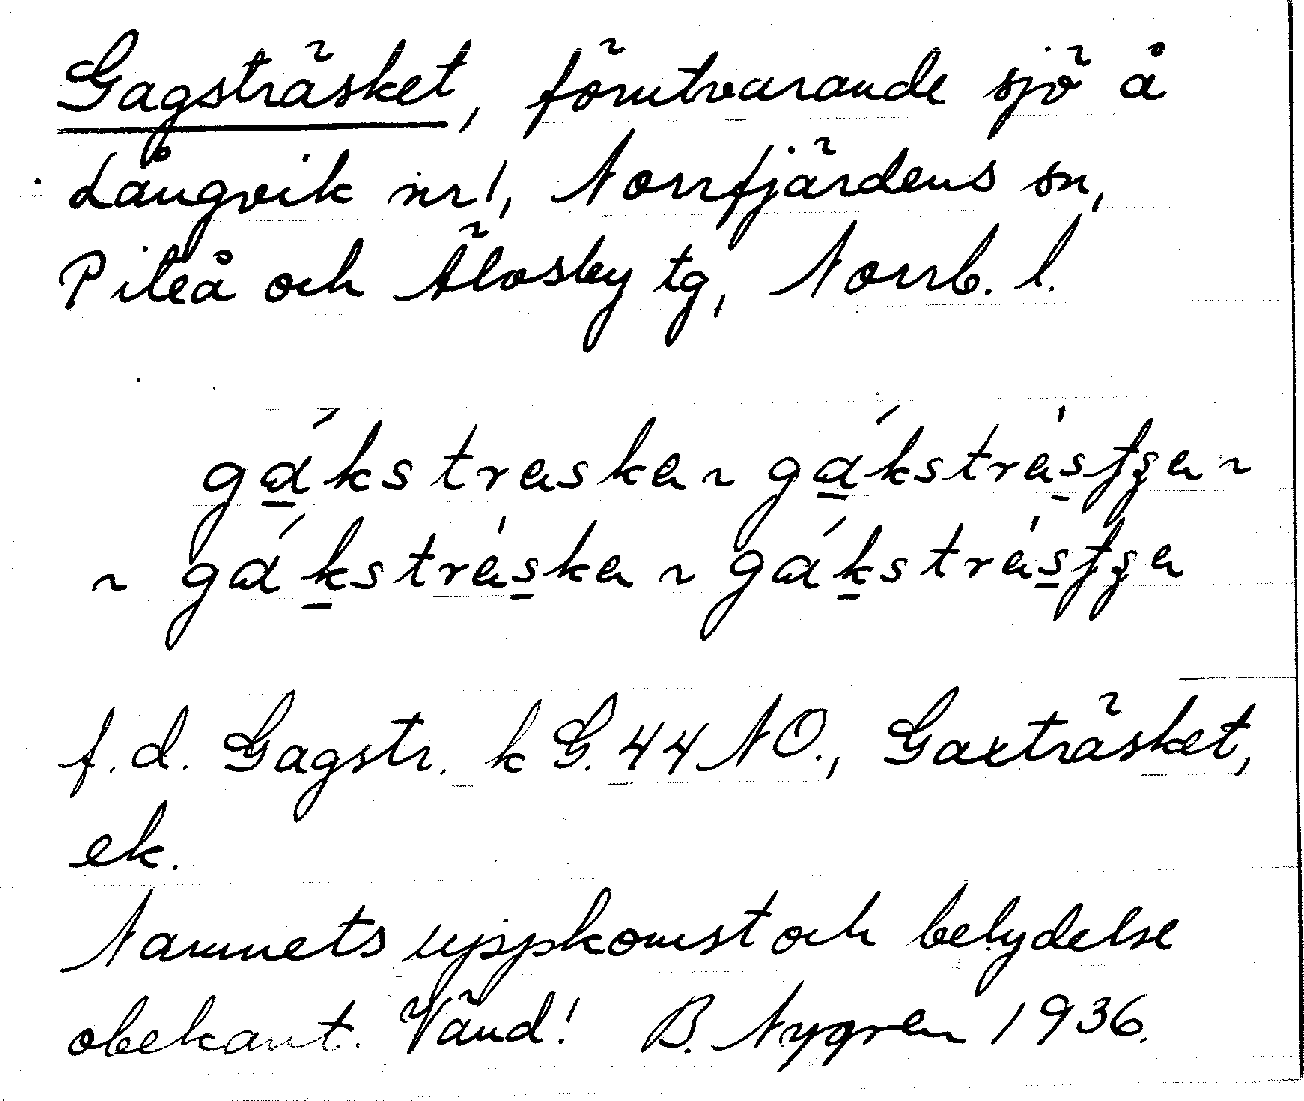 Gagsträsket, förutvarande sjö å
Långvik nr 1, Norrfjärdens sn,
Piteå och Älvsby tg, Norrb. l.
gákstraska ~ gákstrásʃʂa ~
~ gákstráska ~ gákstrásʃʂa
f.d. Gagstr. k G. 44 NO., Gaxträsket,
ek.
Namnets uppkomst och betydelse
obekant. Vänd! B. Nygren 1936.